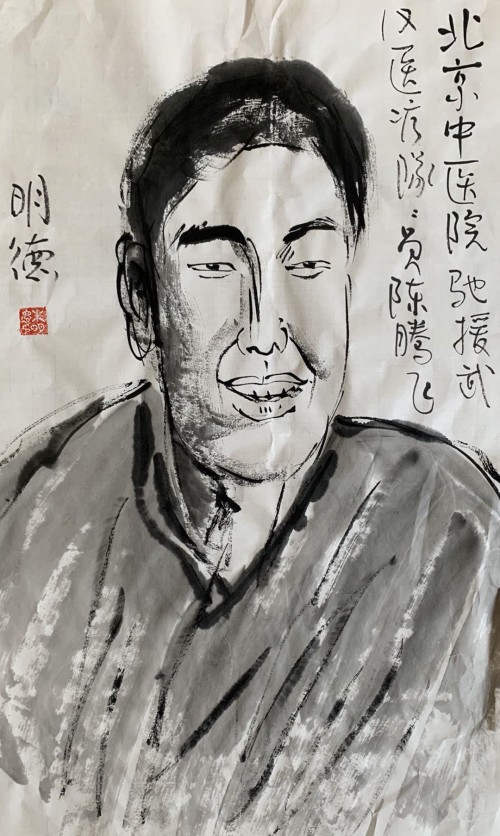 北京中医院驰援武
汉医疗队队员陈腾飞
明德